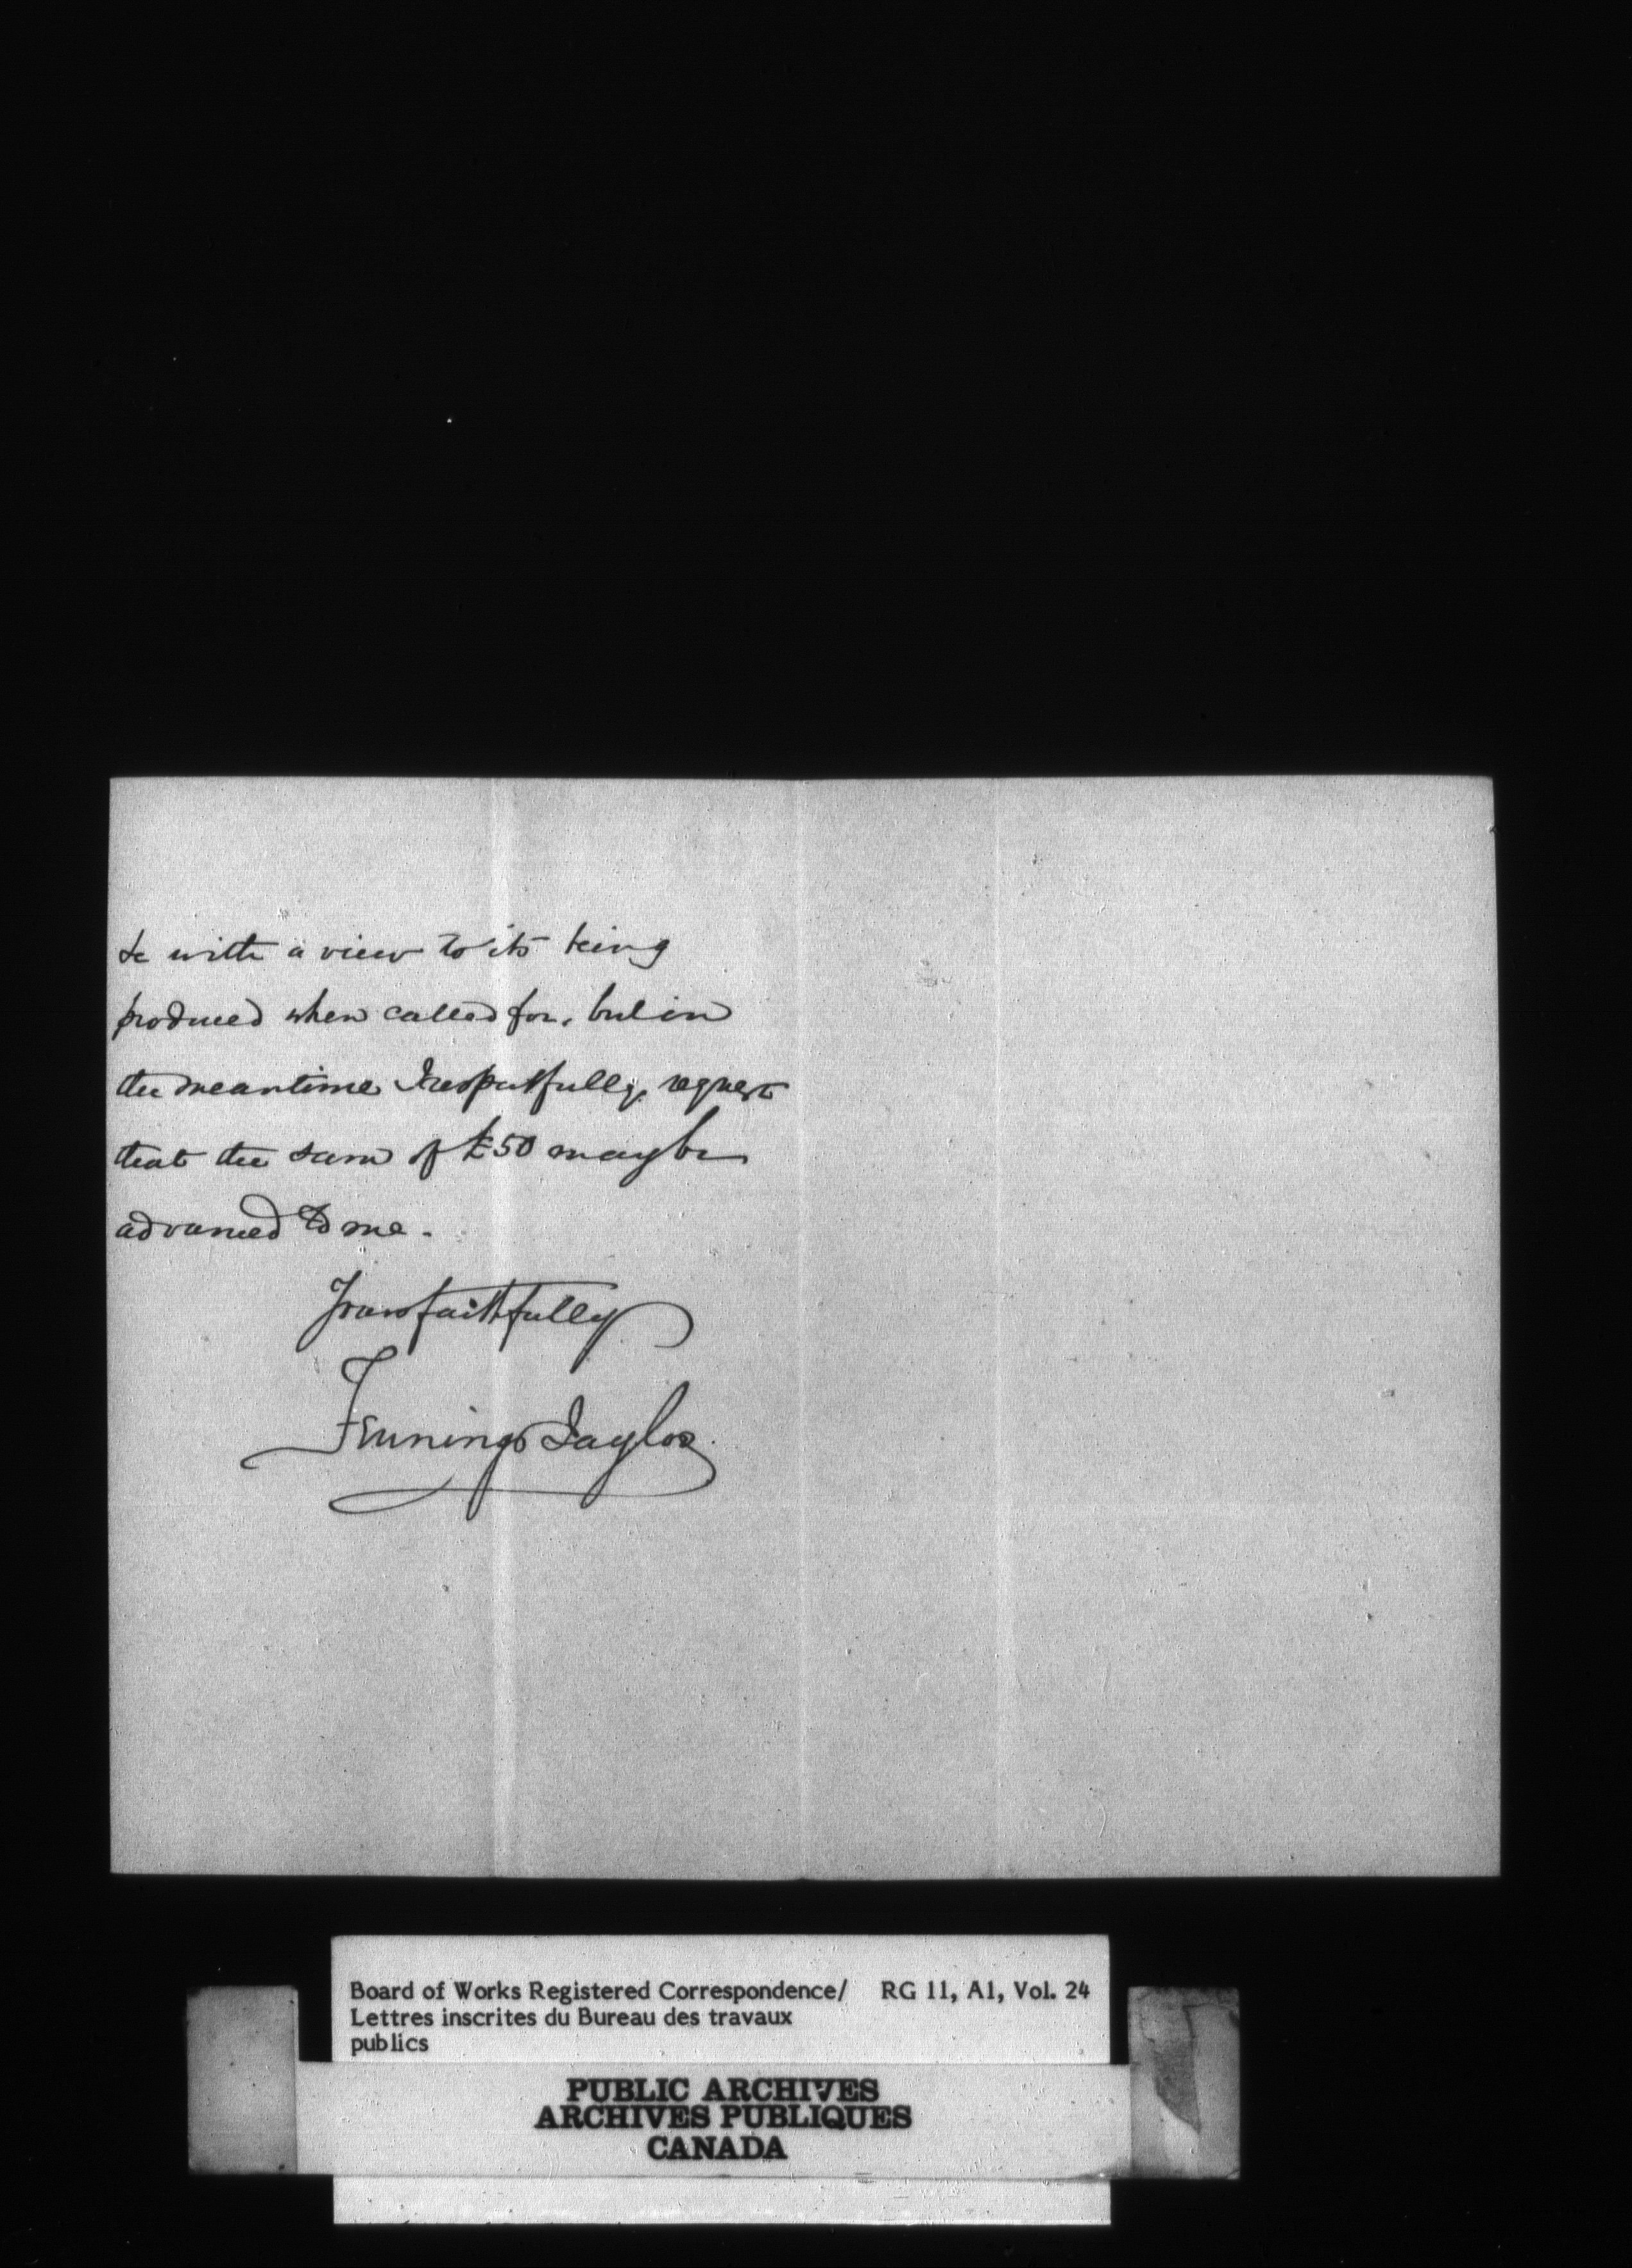 &c with a view to its being
produced when called for, but in
the meantime I respectfully request
that the sum of £50 may be
advanced to me.
Yours faithfully
Fennings Taylor
Board of Works Registered Correspondence/ RG 11, A1, Vol. 24
Lettres inscrites du Bureau des travaux
publics
PUBLIC ARCHIVES
ARCHIVES PUBLIQUES
CANADA